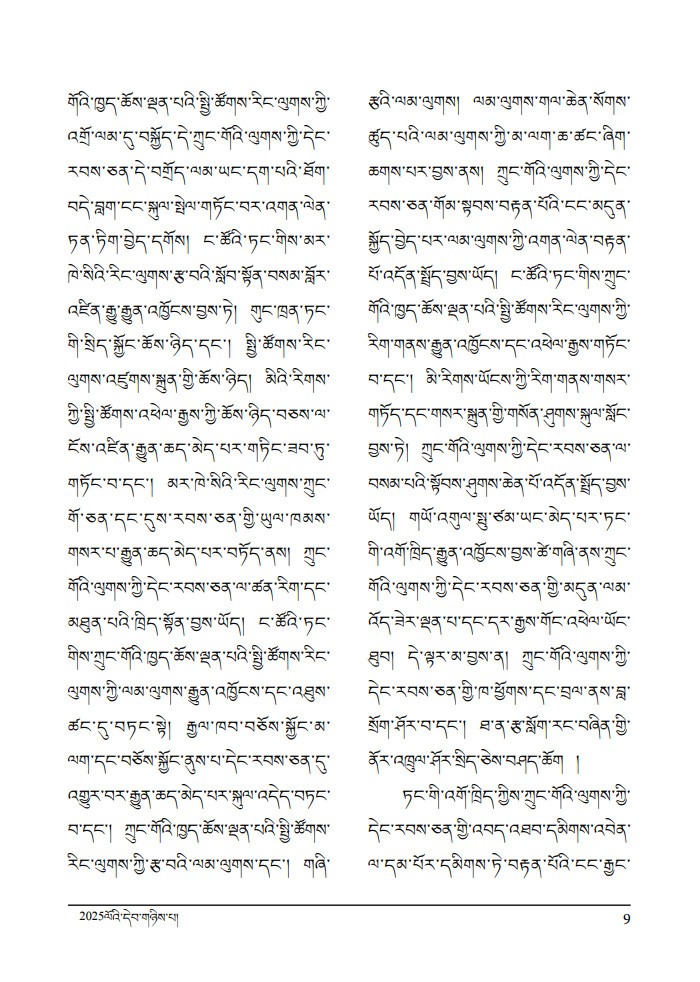 གོའི་ཁྱད་ཆོས་ལྡན་པའི་སྤྱི་ཚོགས་རིང་ལུགས་ཀྱི་
འགྲོ་ལམ་དུ་བསྐྱོད་དེ་ཀྲུང་གོའི་ལུགས་ཀྱི་དེང་
རབས་ཅན་དེ་བགྲོད་ལམ་ཡང་དག་པའི་ཐོག་
བདེ་བླག་ངང་སྐུལ་སྤེལ་གཏོང་བར་འགན་ལེན་
ཏན་ཏིག་བྱེད་དགོས། ང་ཚོའི་ཏང་གིས་མར་
ཁེ་སིའི་རིང་ལུགས་རྩ་བའི་སློབ་སྟོན་བསམ་བློར་
འཛིན་རྒྱུ་རྒྱུན་འཁྱོངས་བྱས་ཏེ། གུང་ཁྲན་ཏང་
གི་སྲིད་སྐྱོང་ཆོས་ཉིད་དང་། སྤྱི་ཚོགས་རིང་
ལུགས་འཛུགས་སྐྲུན་གྱི་ཆོས་ཉིད། མིའི་རིགས་
ཀྱི་སྤྱི་ཚོགས་འཕེལ་རྒྱས་ཀྱི་ཆོས་ཉིད་བཅས་ལ་
ངོས་འཛིན་རྒྱུན་ཆད་མེད་པར་གཏིང་ཟབ་ཏུ་
གཏོང་བ་དང་། མར་ཁེ་སིའི་རིང་ལུགས་ཀྲུང་
གོ་ཅན་དང་དུས་རབས་ཅན་གྱི་ཡུལ་ཁམས་
གསར་པ་རྒྱུན་ཆད་མེད་པར་བཏོད་ནས། ཀྲུང་
གོའི་ལུགས་ཀྱི་དེང་རབས་ཅན་ལ་ཚན་རིག་དང་
མཐུན་པའི་ཁྲིད་སྟོན་བྱས་ཡོད། ང་ཚོའི་ཏང་
གིས་ཀྲུང་གོའི་ཁྱད་ཆོས་ལྡན་པའི་སྤྱི་ཚོགས་རིང་
ལུགས་ཀྱི་ལམ་ལུགས་རྒྱུན་འཁྱོངས་དང་འཐུས་
ཚང་དུ་བཏང་སྟེ། རྒྱལ་ཁབ་བཅོས་སྐྱོང་མ་
ལག་དང་བཅོས་སྐྱོང་ནུས་པ་དེང་རབས་ཅན་དུ་
འགྱུར་བར་རྒྱུན་ཆད་མེད་པར་སྐུལ་འདེད་བཏང་
བ་དང་། ཀྲུང་གོའི་ཁྱད་ཆོས་ལྡན་པའི་སྤྱི་ཚོགས་
རིང་ལུགས་ཀྱི་རྩ་བའི་ལམ་ལུགས་དང་། གཞི་
རྩའི་ལམ་ལུགས། ལམ་ལུགས་གལ་ཆེན་སོགས་
ཚུད་པའི་ལམ་ལུགས་ཀྱི་མ་ལག་ཆ་ཚང་ཞིག་
ཆགས་པར་བྱས་ནས། ཀྲུང་གོའི་ལུགས་ཀྱི་དེང་
རབས་ཅན་གོམ་སྟབས་བརྟན་པོའི་ངང་མདུན་
སྐྱོད་བྱེད་པར་ལམ་ལུགས་ཀྱི་འགན་ལེན་བརྟན་
པོ་འདོན་སྤྲོད་བྱས་ཡོད། ང་ཚོའི་ཏང་གིས་ཀྲུང་
གོའི་ཁྱད་ཆོས་ལྡན་པའི་སྤྱི་ཚོགས་རིང་ལུགས་ཀྱི་
རིག་གནས་རྒྱུན་འཁྱོངས་དང་འཕེལ་རྒྱས་གཏོང་
བ་དང་། མི་རིགས་ཡོངས་ཀྱི་རིག་གནས་གསར་
གཏོད་དང་གསར་སྐྲུན་གྱི་གསོན་ཤུགས་སྐུལ་སློང་
བྱས་ཏེ། ཀྲུང་གོའི་ལུགས་ཀྱི་དེང་རབས་ཅན་ལ་
བསམ་པའི་སྟོབས་ཤུགས་ཆེན་པོ་འདོན་སྤྲོད་བྱས་
ཡོད། གཡོ་འགུལ་སྤུ་ཙམ་ཡང་མེད་པར་ཏང་
གི་འགོ་ཁྲིད་རྒྱུན་འཁྱོངས་བྱས་ཚེ་གཞི་ནས་ཀྲུང་
གོའི་ལུགས་ཀྱི་དེང་རབས་ཅན་གྱི་མདུན་ལམ་
འོད་ཟེར་ལྡན་པ་དང་དར་རྒྱས་གོང་འཕེལ་ཡོང་
ཐུབ། དེ་ལྟར་མ་བྱས་ན། ཀྲུང་གོའི་ལུགས་ཀྱི་
དེང་རབས་ཅན་གྱི་ཁ་ཕྱོགས་དང་བྲལ་ནས་བླ་
སྲོག་ཤོར་བ་དང་། ཐ་ན་རྩ་སློག་རང་བཞིན་གྱི་
ནོར་འཁྲུལ་ཤོར་སྲིད་ཅེས་བཤད་ཆོག །
ཏང་གི་འགོ་ཁྲིད་ཀྱིས་ཀྲུང་གོའི་ལུགས་ཀྱི་
དེང་རབས་ཅན་གྱི་འབད་འཐབ་དམིགས་འབེན་
ལ་དམ་པོར་དམིགས་ཏེ་བརྟན་པོའི་ངང་རྒྱང་
2025ལོའི་དེབ་གཉིས་པ།
9